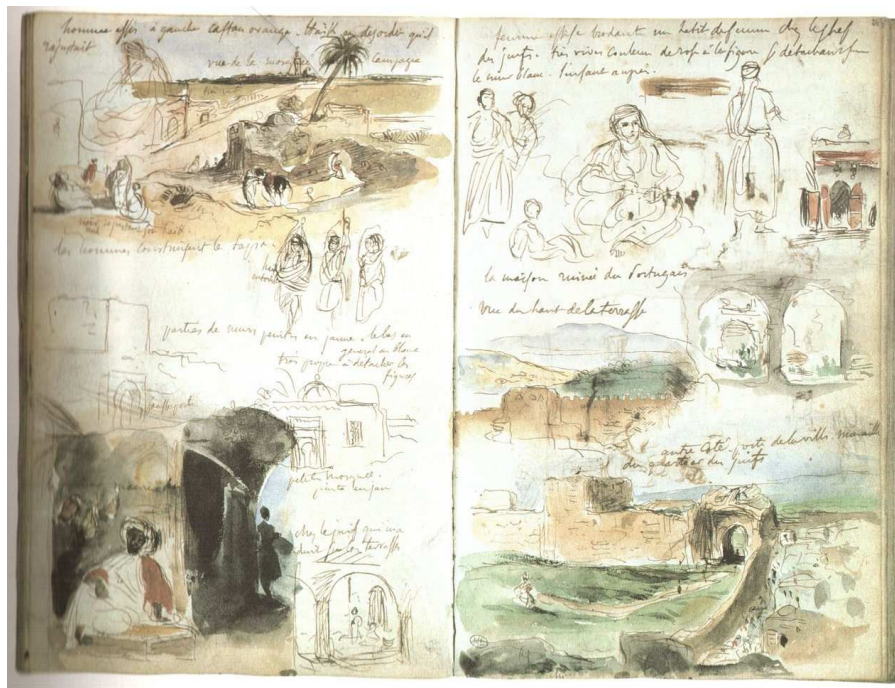 homme assis à gauche caftan orange. haïk en desordre qu'il
rajustait
vue de la mosquée campagne
les hommes construisant le
parties de murs peints en jaune. le bas en
general en blanc
très propre à detacher les
figures
petite mosquée.
peinte en jaune
chez le juif qui m'a
conduit sur les terrasses
femme assise brodant un habit de femme chez le chef
des juifs. très vives couleur de rose à la figure se detachant sur
le mur blanc. l'enfant auprès.
la maison ruinée du Portugais
vue du haut de la terrasse
autre côté porte de la ville muraille
du quartier des juifs